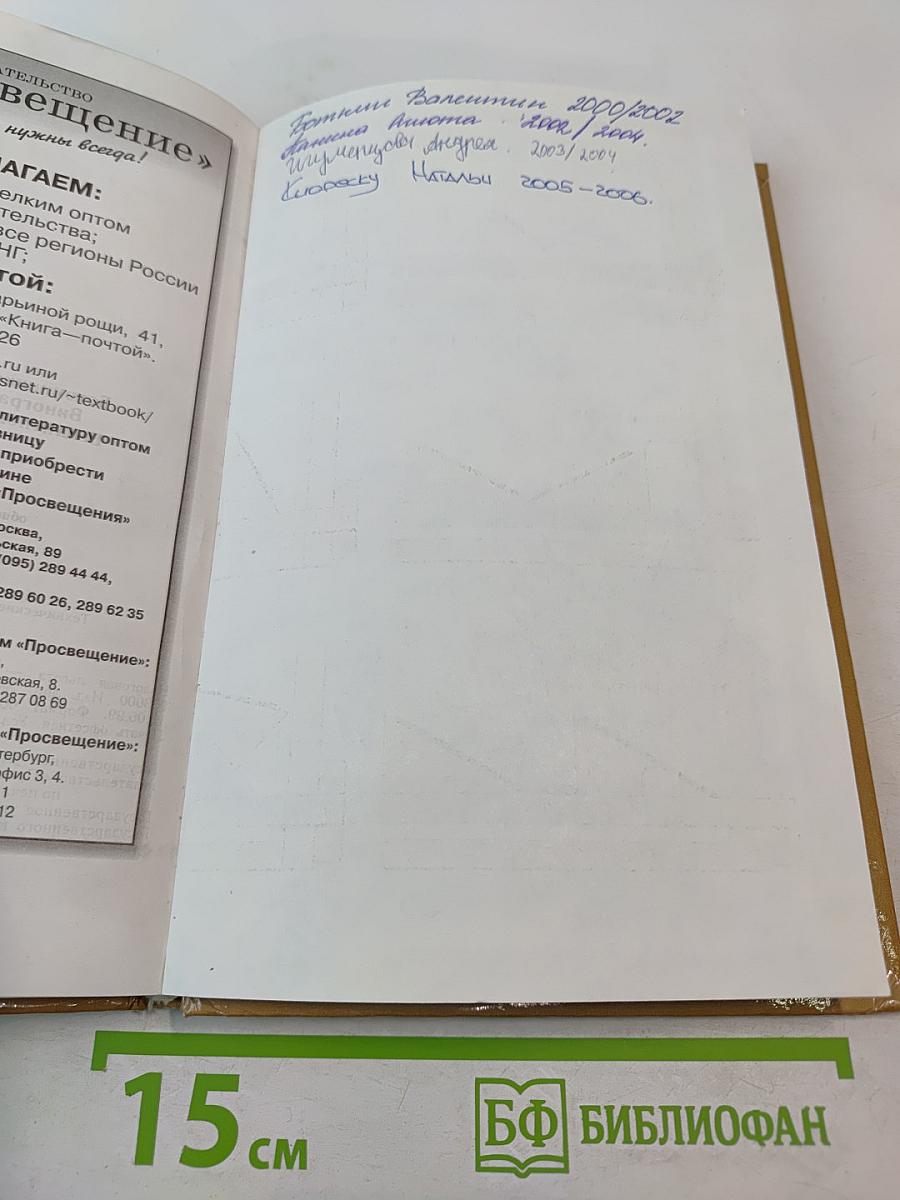 АТЕЛЬСТВО
вещение»
нужны всегда!
АГАЕМ:
елким оптом
тельства;
все регионы России
НГ;
той:
арьиной рощи, 41,
«Книга—почтой».
26
.ru или
snet.ru/~textbook/
литературу оптом
зницу
приобрести
ине
«Просвещения»
осква,
ьская, 89
(095) 289 44 44,
289 60 26, 289 62 35
м «Просвещение»:
вская, 8.
287 08 69
«Просвещение»:
тербург,
фис 3, 4.
1
12
Валентин 2000/2002
Панина 2002/2004.
Андрей. 2003/2004
Наталья 2005-2006.
15 см
БФ БИБЛИОФАН